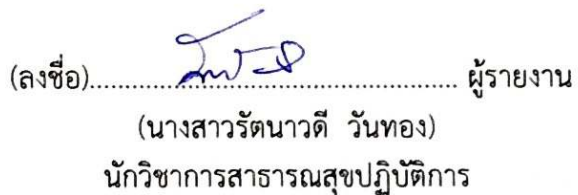 (ลงชื่อ)........................................................ ผู้รายงาน
(นางสาวรัตนาวดี วันทอง)
นักวิชาการสาธารณสุขปฏิบัติการ